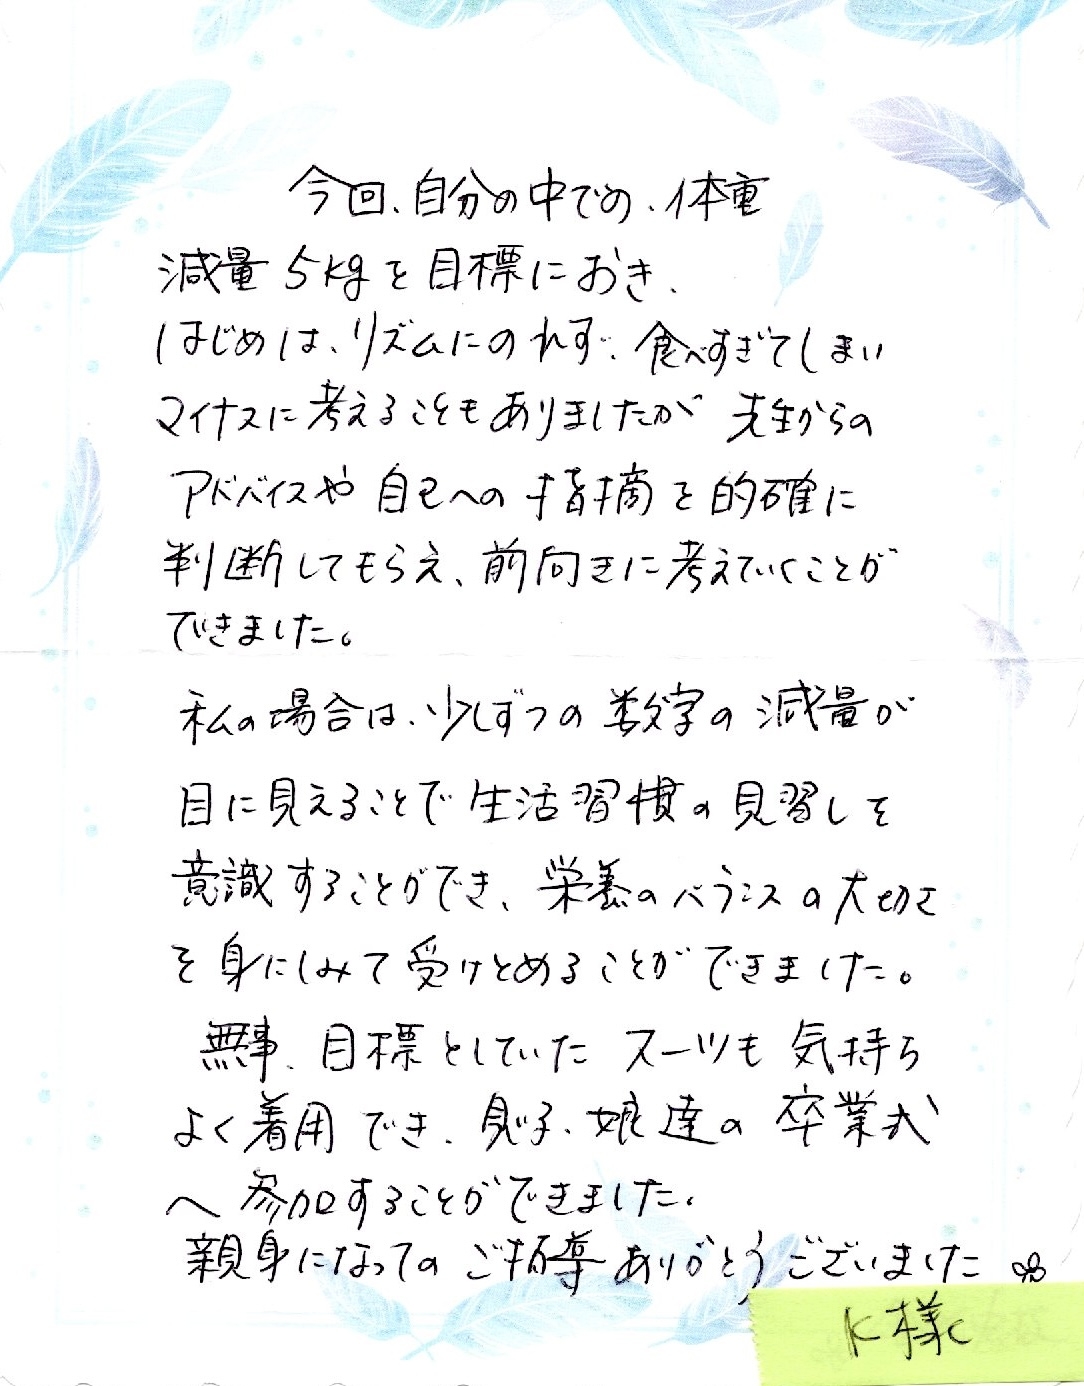 今回、自分の中での、体重
減量5kgを目標におき、
はじめは、リズムにのれず、食べすぎてしまい
マイナスに考えることもありましたが 先生からの
アドバイスや自己への指摘を的確に
判断してもらえ、前向きに考えていくことが
できました。
私の場合は、少しずつの数字の減量が
目に見えることで生活習慣の見習しを
意識することができ、栄養のバランスの大切さ
を身にしみて受けとめることができました。
無事、目標としていたスーツも気持ち
よく着用でき、息子、娘達の卒業式
へ参加することができました。
親身になってのご指導ありがとうございました
K様